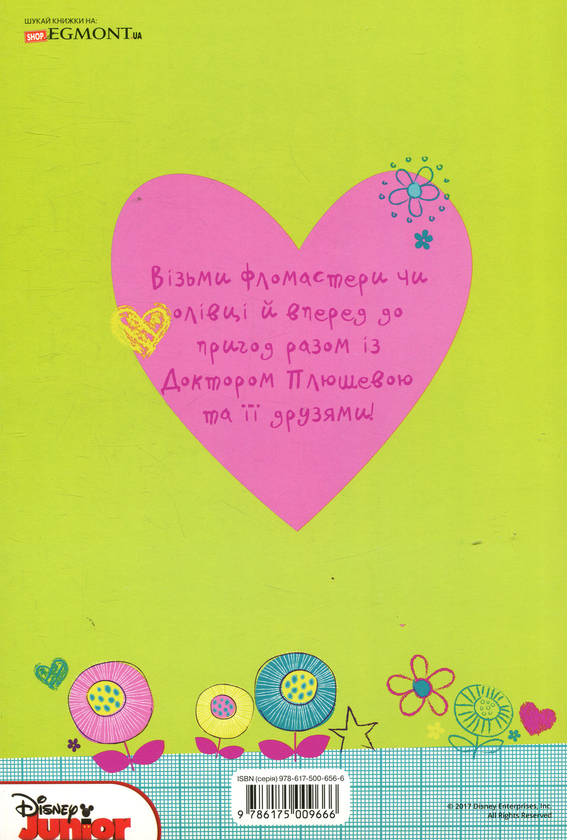 ШУКАЙ КНИЖКИ НА:
SHOP.EGMONT.UA
Візьми фломастери чи
олівці й вперед до
пригод разом із
Доктором Плюшевою
та її друзями!
ISBN (серія) 978-617-500-656-6
9 786175 009666
© 2017 Disney Enterprises, Inc.
All Rights Reserved
Disney
Junior